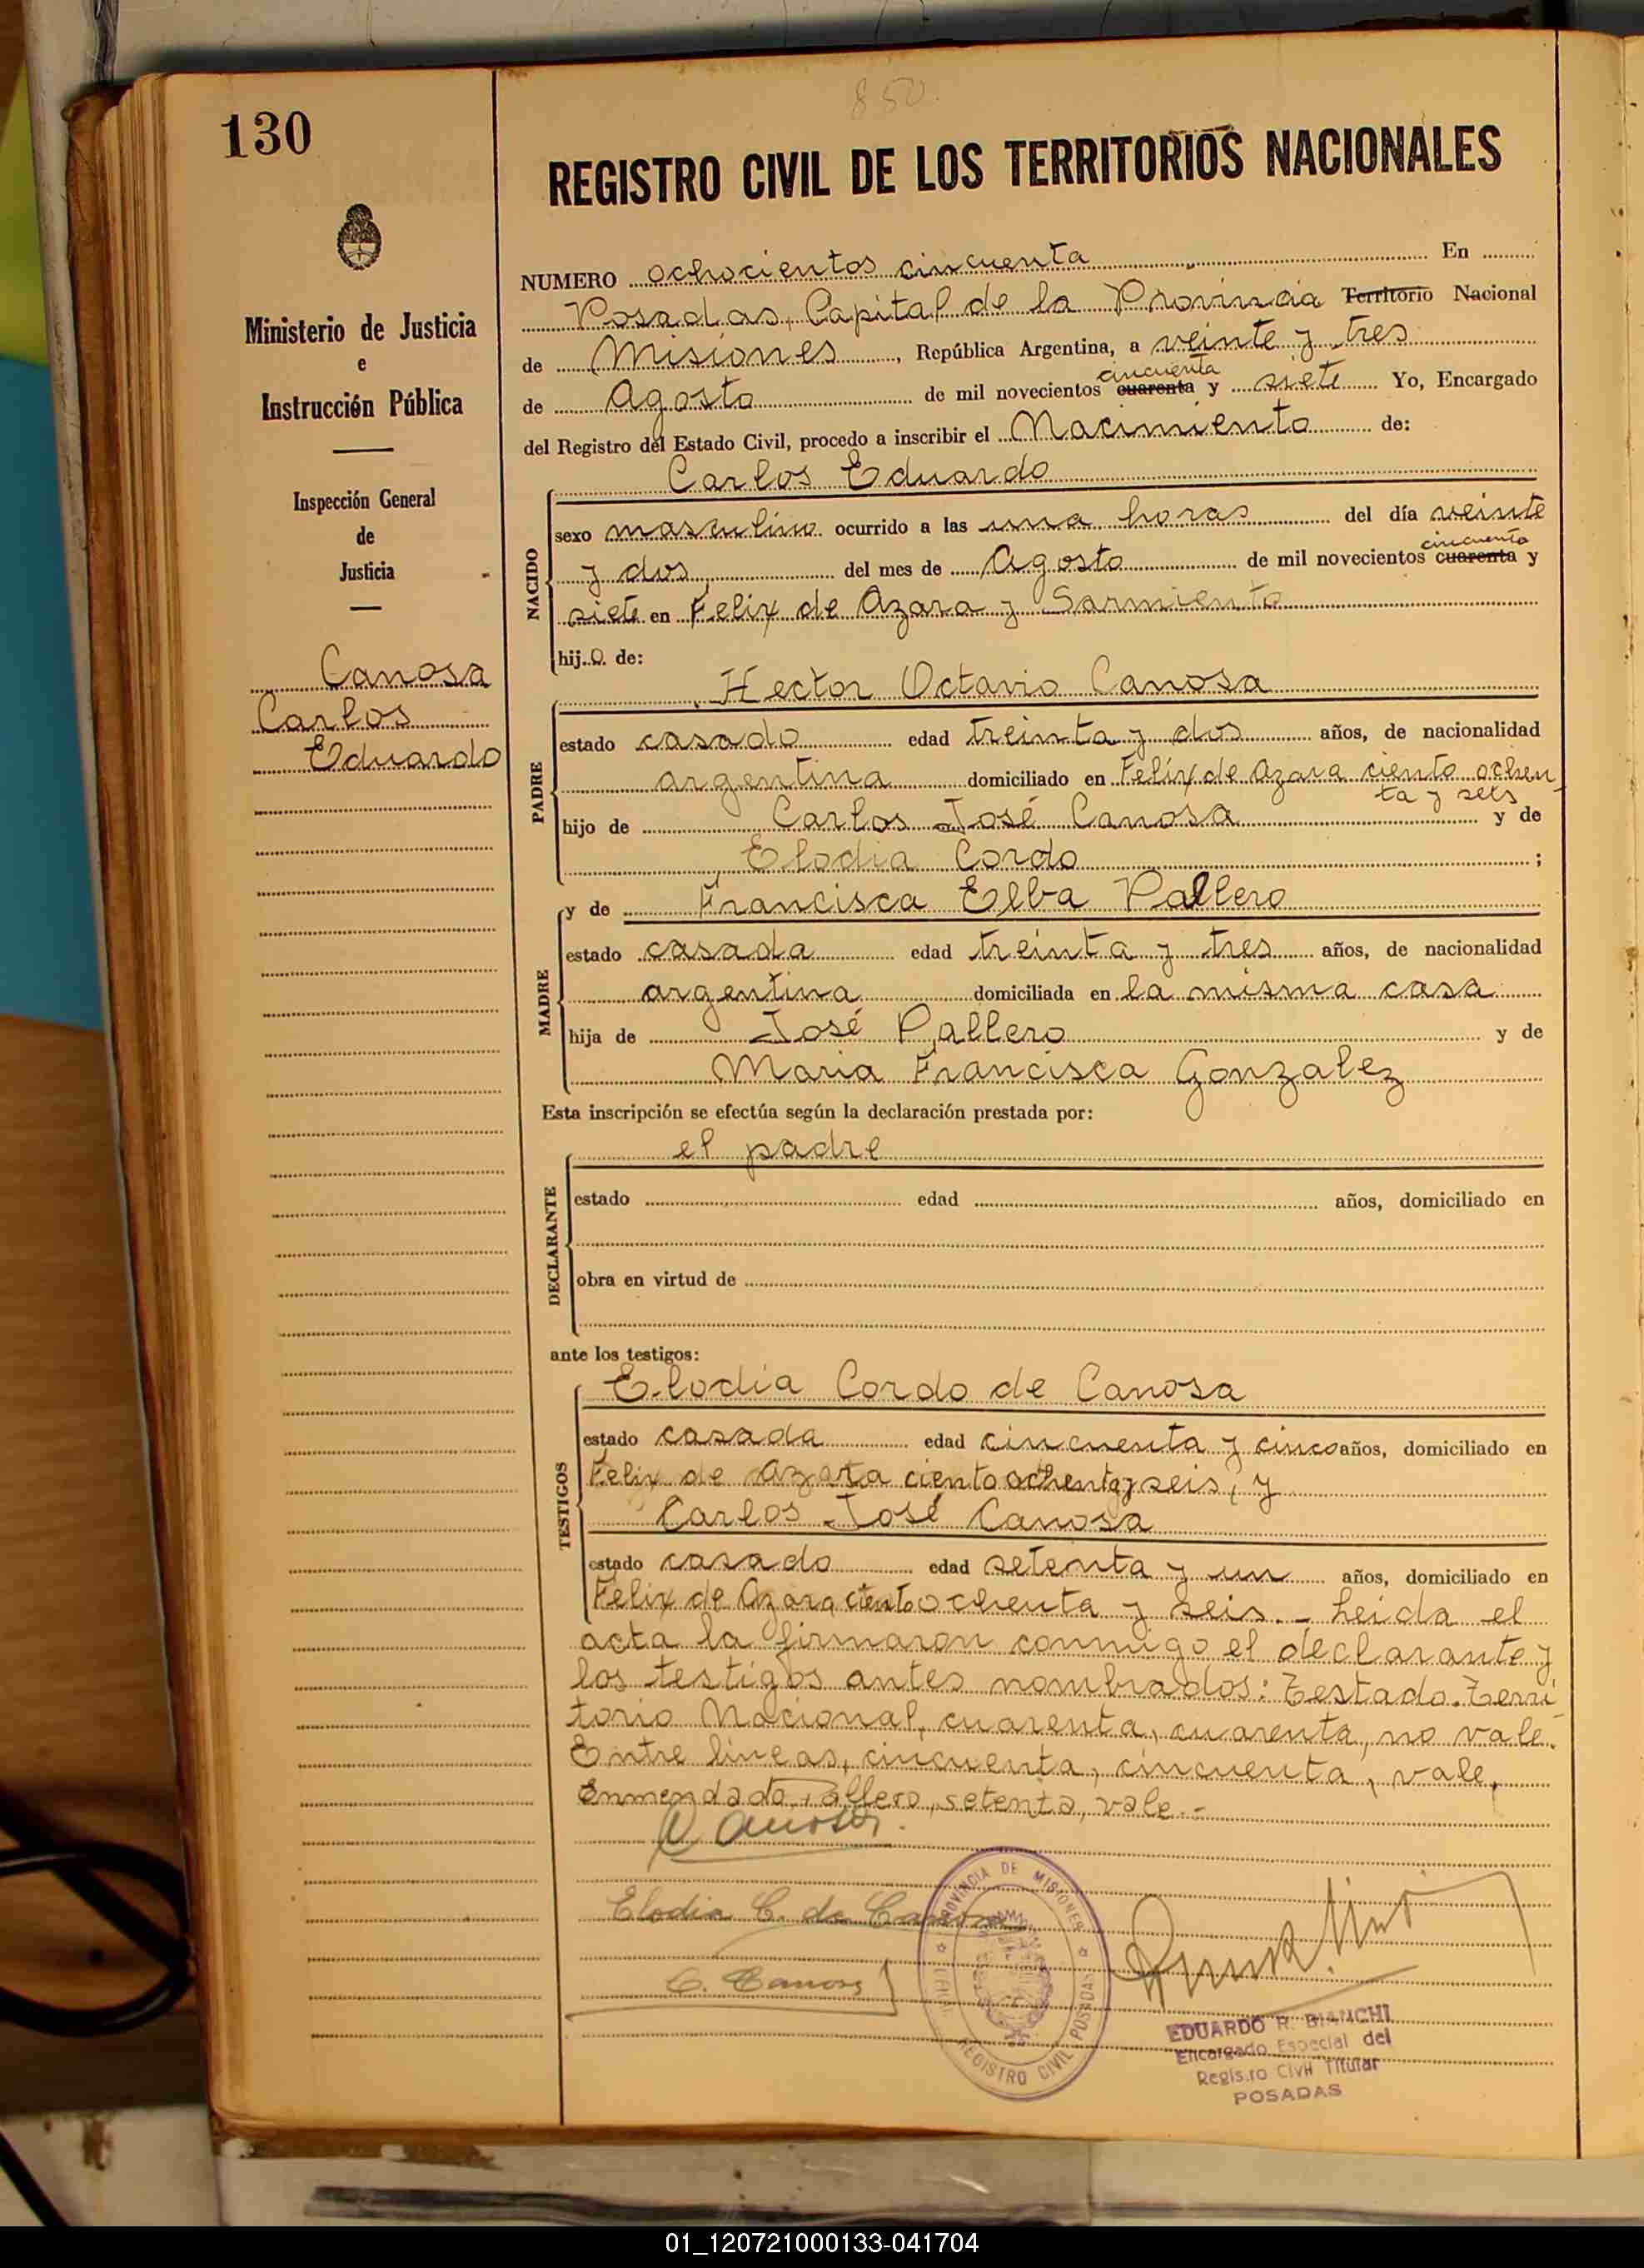 850.
130
REGISTRO CIVIL DE LOS TERRITORIOS NACIONALES
Ministerio de Justicia
e
Instrucción Pública
Inspección General
de
Justicia
Canosa
Carlos
Eduardo
NUMERO ochocientos cincuenta En
Posadas, Capital de la Provincia Territorio Nacional
de Misiones, República Argentina, a veinte y tres
de Agosto de mil novecientos cuarenta cincuenta y siete Yo, Encargado
del Registro del Estado Civil, procedo a inscribir el Nacimiento de:
NACIDO
Carlos Eduardo
sexo masculino ocurrido a las una horas del día veinte
y dos, del mes de Agosto de mil novecientos cuarenta cincuenta y
siete en Felix de Azara y Sarmiento
hijo de:
PADRE
Hector Octavio Canosa
estado casado edad treinta y dos años, de nacionalidad
argentina domiciliado en Felix de Azara ciento ochen
ta y seis
hijo de Carlos José Canosa y de
Elodia Cordo ;
MADRE
y de Francisca Elba Pallero
estado casada edad treinta y tres años, de nacionalidad
argentina domiciliada en la misma casa
hija de José Pallero y de
Maria Francisca Gonzalez
Esta inscripción se efectúa según la declaración prestada por:
DECLARANTE
el padre
estado edad años, domiciliado en
obra en virtud de
ante los testigos:
TESTIGOS
Elodia Cordo de Canosa
estado casada edad cincuenta y cinco años, domiciliado en
Felix de Azara ciento ochenta y seis, y
Carlos José Canosa
estado casado edad setenta y un años, domiciliado en
Felix de Azara ciento ochenta y seis.- Leida el
acta la firmaron conmigo el declarante y
los testigos antes nombrados: Testado. Terri
torio Nacional, cuarenta, cuarenta, no vale.
Entre lineas, cincuenta, cincuenta, vale,
Enmendado, Pallero, setenta, vale.-
Canosa.
Elodia C. de Canosa
C. Canosa
PROVINCIA DE MISIONES
REGISTRO CIVIL POSADAS
EDUARDO R. BIANCHI
Encargado Especial del
Registro Civil Titular
POSADAS
01_120721000133-041704